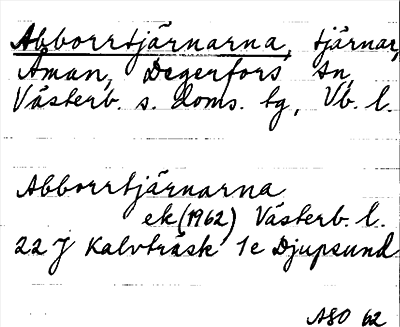 Abborrtjärnarna, tjärnar,
Åman, Degerfors sn,
Västerb. s. doms. tg, Vb. l.
Abborrtjärnarna
ek (1962) Västerb. l.
22 J Kalvträsk 1e Djupsund
ASO 62